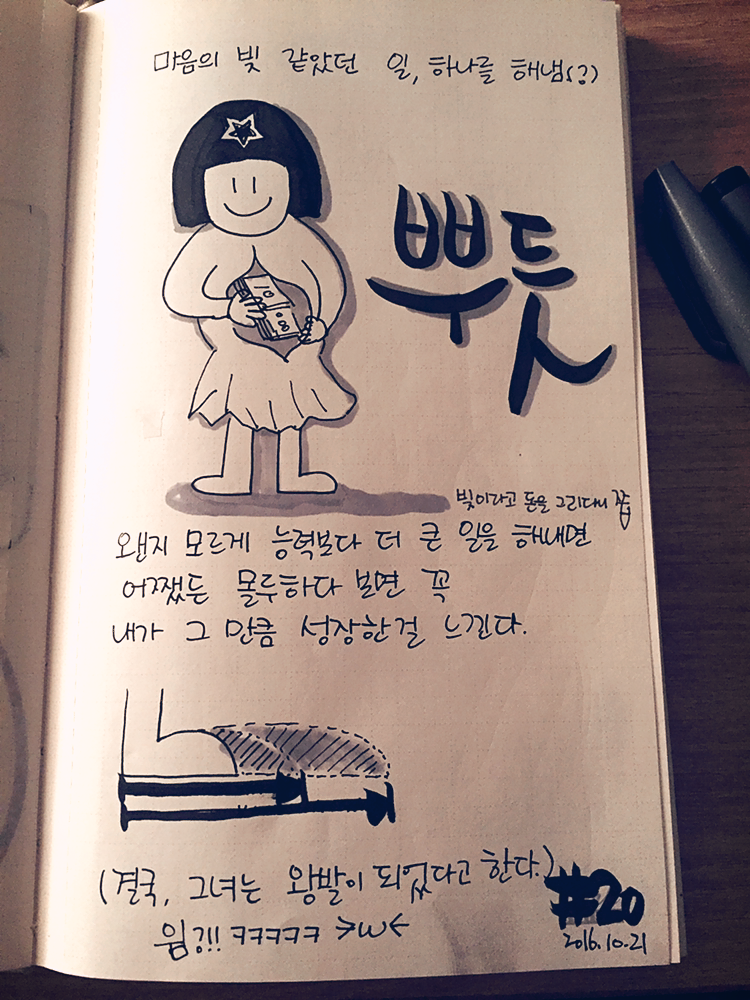 마음의 빚 같았던 일, 하나를 해냄(?)
뿌듯
빚이라고 돈을 그리다니
왠지 모르게 능력보다 더 큰 일을 해내면
어쨌든 몰두하다 보면 꼭
내가 그 만큼 성장한걸 느낀다.
(결국, 그녀는 왕발이 되었다고 한다.)
웜킹!! ㅋㅋㅋㅋㅋ >w<
#20
2016.10.21